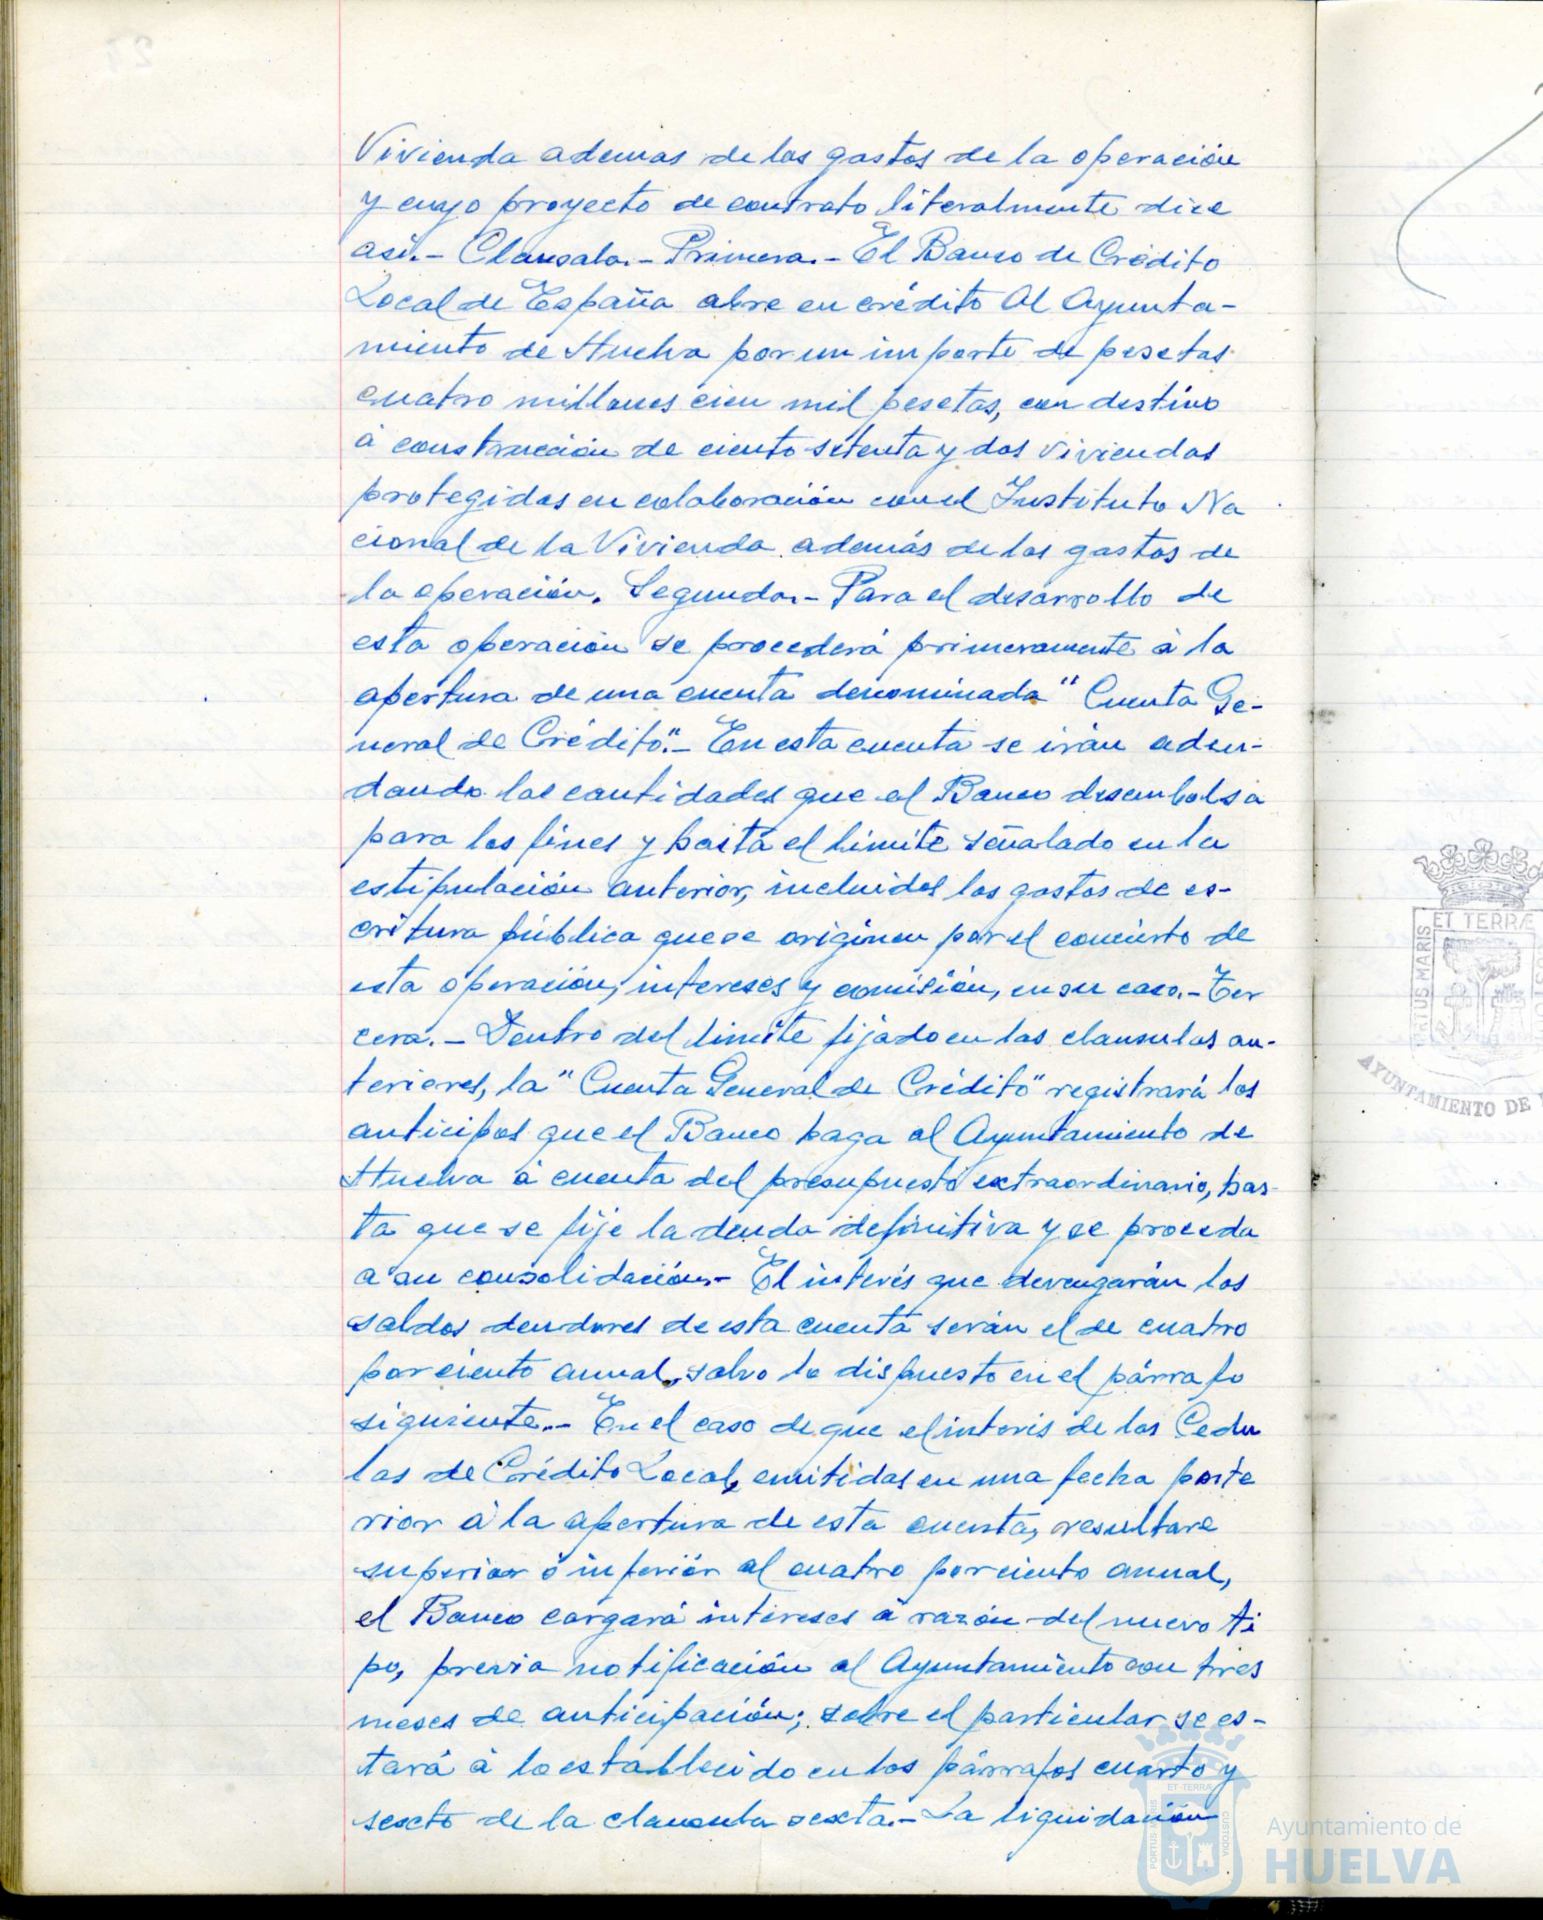 Vivienda ademas de los gastos de la operación
y cuyo proyecto de contrato literalmente dice
asi.- Clausula.- Primera.- El Banco de Crédito
Local de España abre en crédito al Ayunta-
miento de Huelva por un importe de pesetas
cuatro millones cien mil pesetas, con destino
á construcción de ciento setenta y dos viviendas
protegidas en colaboración con el Instituto Na
cional de la Vivienda además de los gastos de
la operación. Segunda.- Para el desarrollo de
esta operación se procederá primeramente á la
apertura de una cuenta denominada "Cuenta Ge-
neral de Crédito".- En esta cuenta se irán adeu-
dando las cantidades que el Banco desembolsa
para los fines y hasta el limite señalado en la
estipulación anterior, incluidos los gastos de es-
critura pública que se originen por el concierto de
esta operación, intereses y comisión, en su caso.- Ter
cera.- Dentro del limite fijado en las clausulas an-
teriores, la "Cuenta General de Crédito" registrará los
anticipos que el Banco haga al Ayuntamiento de
Huelva á cuenta del presupuesto extraordinario, has-
ta que se fije la deuda definitiva y se proceda
a su consolidación.- El interés que devengarán los
saldos deudores de esta cuenta serán el de cuatro
por ciento anual, salvo lo dispuesto en el párrafo
siguiente.- En el caso de que el interis de las Cedu
las de Crédito Local, emitidas en una fecha poste
rior á la apertura de esta cuenta, resultare
superior ó inferiór al cuatro por ciento anual,
el Banco cargará intereses á razón del nuevo ti
po, previa notificación al Ayuntamiento con tres
meses de anticipación; sobre el particular se es-
tará á lo establecido en los párrafos cuarto y
sexto de la clausula sexta.- La liquidación
PORTUS MARIS ET TERRÆ CUSTODIA
AYUNTAMIENTO DE
PORTUS MARIS ET TERRÆ CUSTODIA
Ayuntamiento de
HUELVA